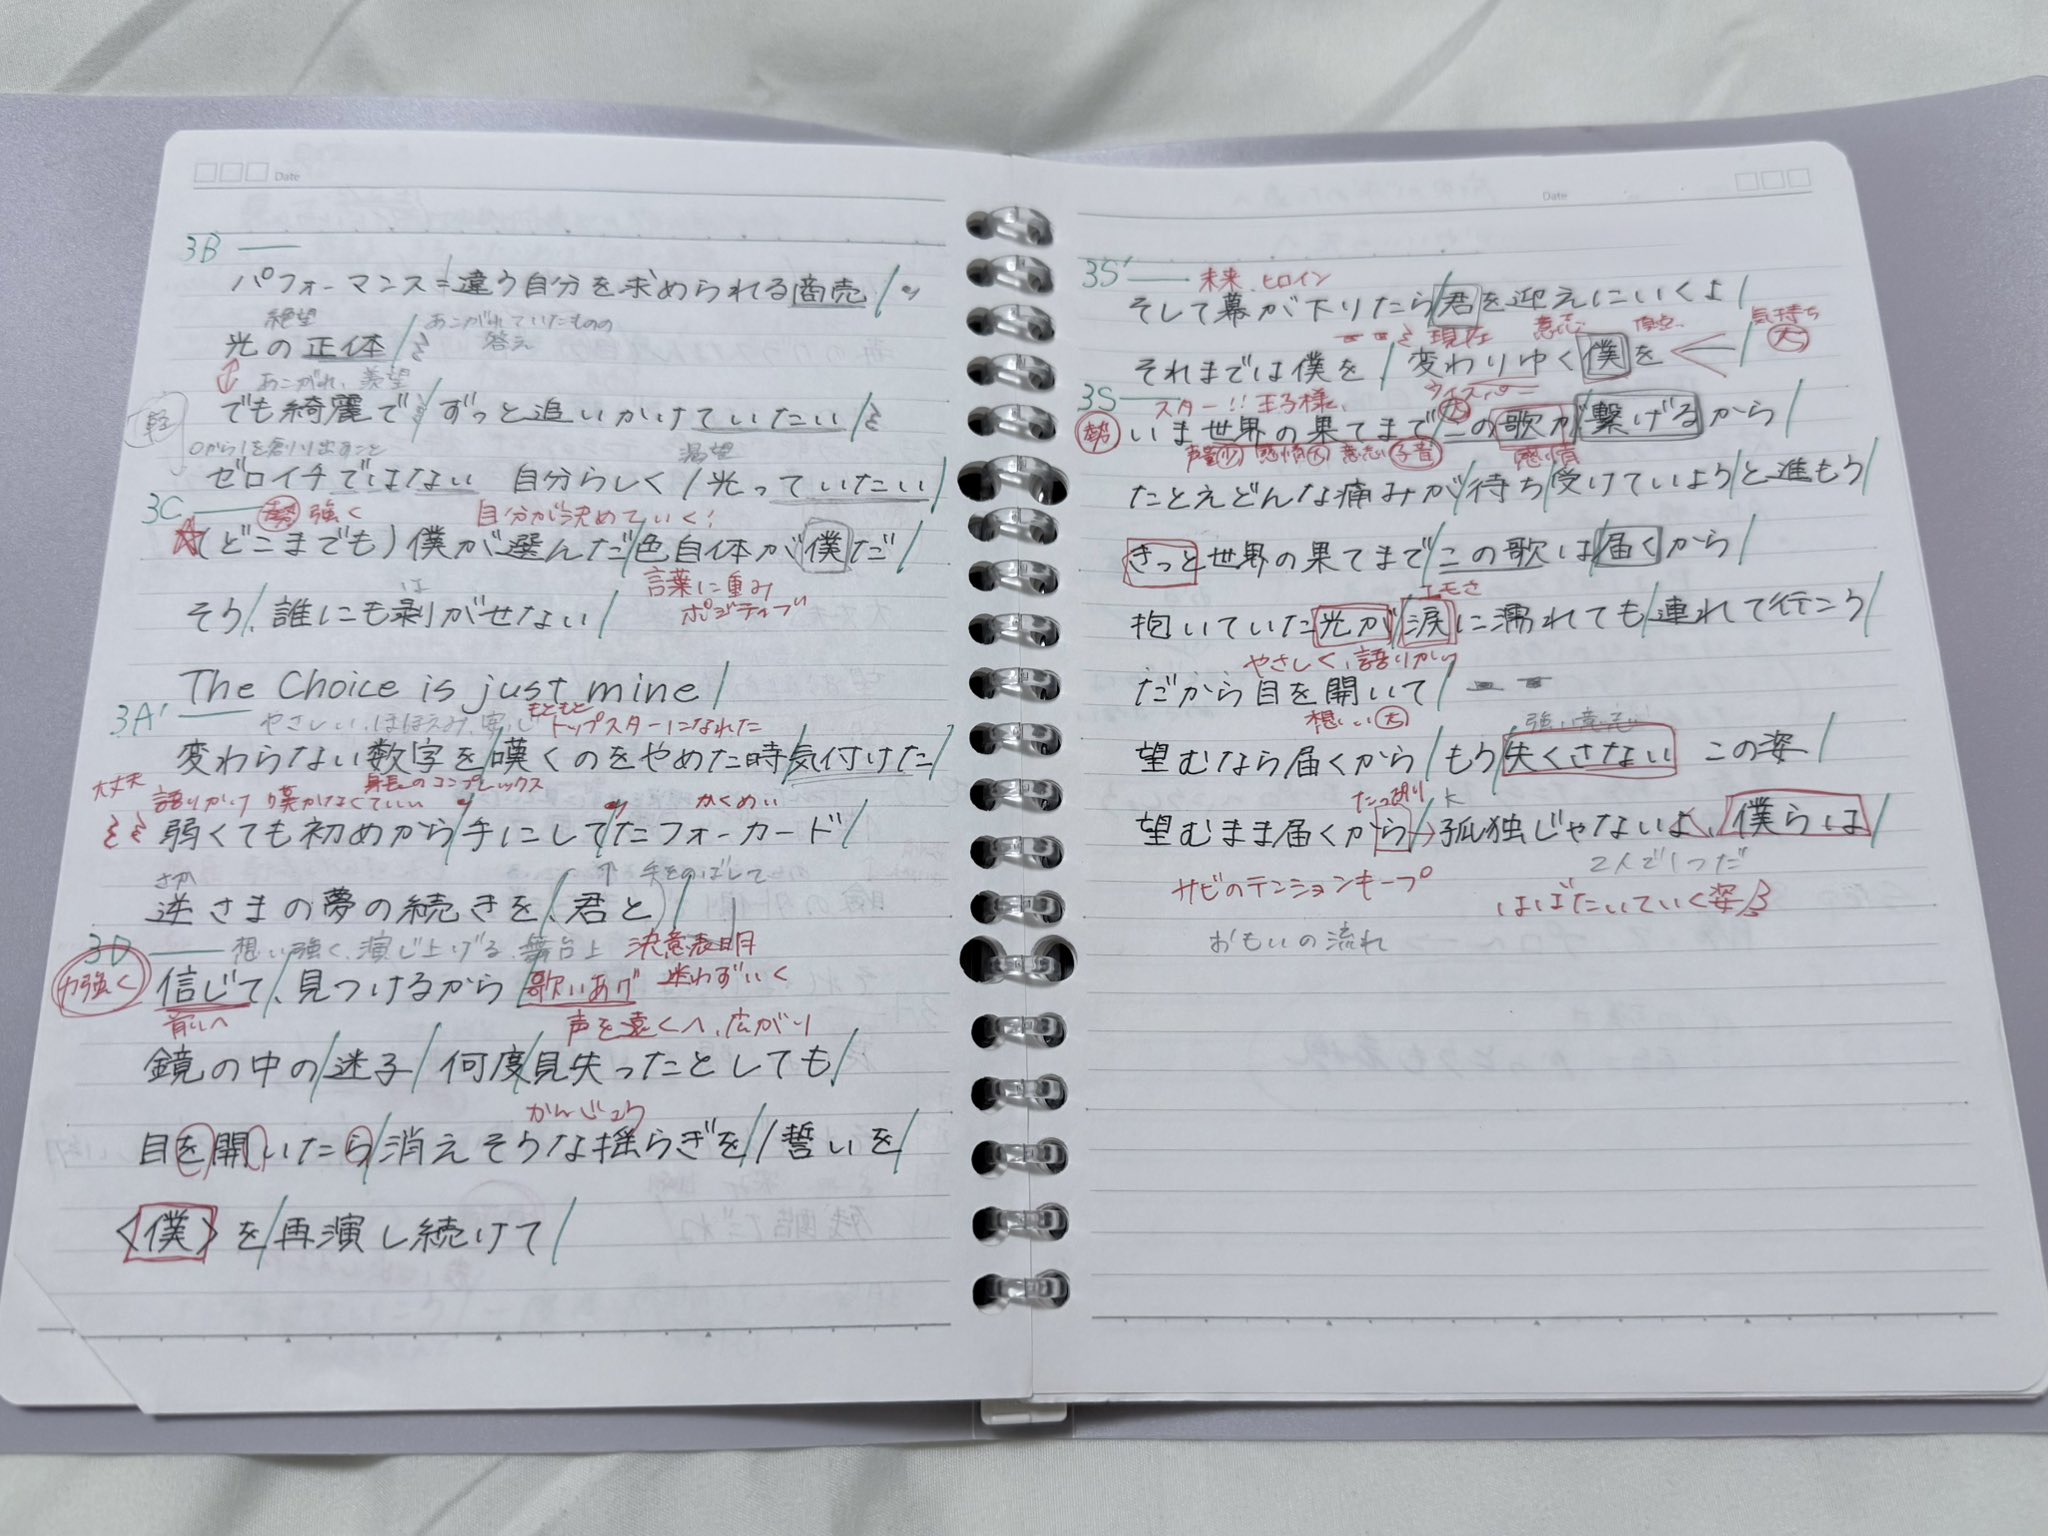 Date
3B
パフォーマンス=違う自分を求められる商売/
絶望 あこがれていたものの
光の正体/ 答え
あこがれ、羨望
軽
でも綺麗で/ずっと追いかけていたい/
0から1を創り出すこと 渇望
ゼロイチではない 自分らしく/光っていたい/
3C 強く 自分が決めていく!
☆(どこまでも)僕が選んだ/色自体が僕だ/
は 言葉に重み
そう/、誰にも剥がせない/ ポジティブ
The Choice is just mine/
3A' やさしい、ほほえみ、 もともと トップスターになれた
変わらない数字を/嘆くのをやめた時/気付けた/
大丈夫 語りかけ 嘆かなくていい 身長のコンプレックス かくめい
弱くても初めから/手にして/たフォーカード/
さか 手をのばして
逆さまの夢の続きを、(君と)/
3D 想い強く、演じ上げる、舞台上 決意表明
力強く 信じて/、見つけるから/歌いあげ 迷わずいく
前へ 声を遠くへ、広がり
鏡の中の/迷子/何度/見失ったとしても/
かんじょう
目を開いたら/消えそうな揺らぎを//誓いを/
〈僕〉を/再演し続けて/
Date
3S' 未来、ヒロイン
そして幕が下りたら/君を迎えにいくよ/
現在 気持ち 大
それまでは僕を/変わりゆく僕を/
3S スター!!王子様、 ウィスパー
いま世界の果てまで/この歌が/繋げるから/
声量少 感情大 意志 子音 感情
たとえどんな痛みが/待ち/受けていよう/と進もう/
きっと世界の果てまで/この歌は/届くから/
エモさ
抱いていた/光が/涙に濡れても/連れて行こう/
やさしく、語りかけ
だから目を開いて/
想い大 強い意志
望むなら届くから/もう/失くさない この姿/
たっぷり K
望むまま届くから/→孤独じゃないよ、僕らは/
2人で1つだ
サビのテンションキープ
はばたいていく姿
おもいの流れ